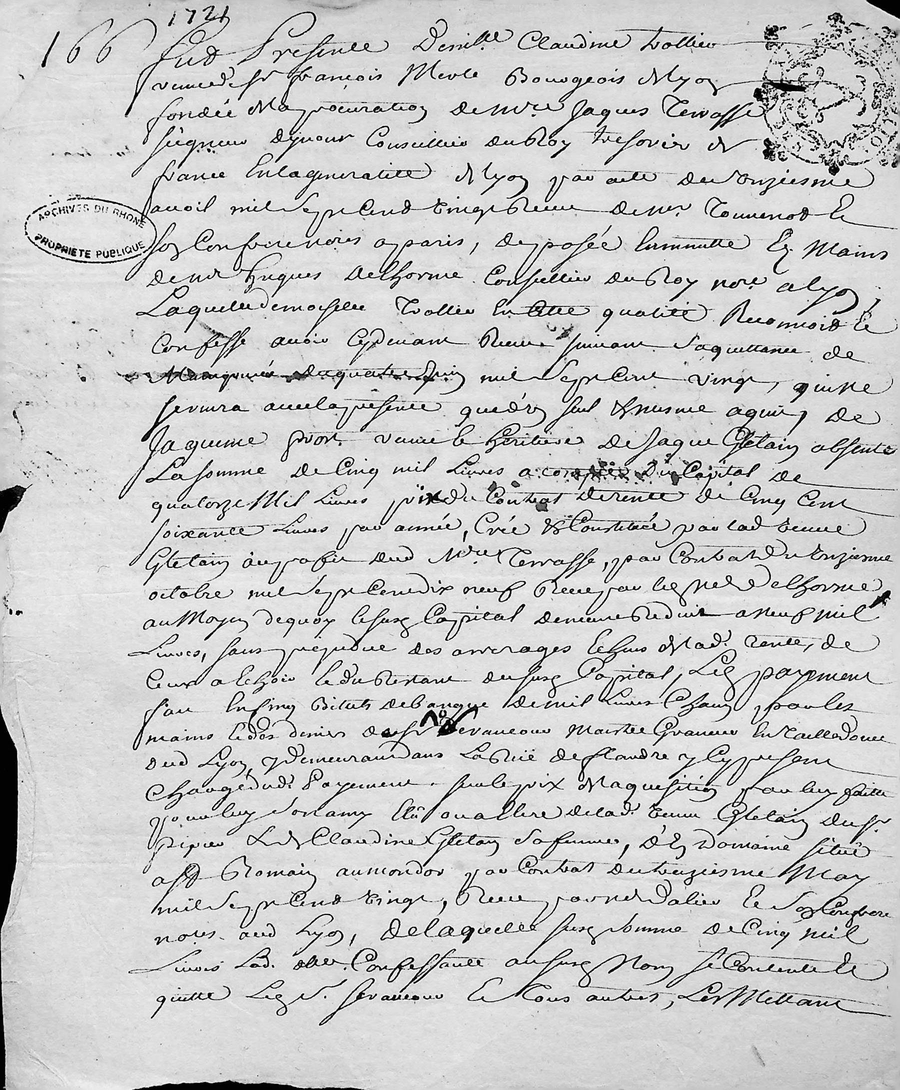 1721
166
Fut Presente Demlle Claudine Trollier
veuve de Sr françois Merle Bourgeois de Lyon
fondée de La procuration de Mre Jaques Terrasse
seigneur d'yvour Conseiller du Roy tresorier de
france En la generalitté de Lyon par acte du onziesme
avril mil sept Cent vingt Receu de Mr Tournenot Et
son Confrere nores a paris, deposée En minutte Es Mains
de Mr hugues Delhorme Conseiller du Roy nore a Lyon,
Laquelle demoiselle Trollier En qualité Reconnoist Et
Confesse avoir Cy devant Receu suivant sa quittance de
mil sept Cent vingt, qui ne
servira avec la presente que d'un seul & mesme aquit, de
Jaqueme veuve Et heritiere de Jaque Gletain absente
La somme de Cinq mil Livres a compte du Capital de
quatorze Mil Livres prix du Contrat de rente de Cinq Cent
soixante Livres par année, Crée & Constituée par lad. veuve
Gletain au profit dud. Mre Terrasse, par Contrat du onziesme
octobre mil sept Cent dix neuf Receu par led. Delhorme
au Moyen de quoy le susd. Capital demeure reduit a neuf mil
Livres, sans prejudice des arrerages Echus de Lad. rente, de
Ceux a Echoir Et du Restant du susd. Capital, Led. payement
fait En Cinq Billets de banque de mil Livres Chacun, par les
mains Et des deniers de Sr Maistre Graveur En Taille douce
dud. Lyon y demeurant dans La Rüe de flandre y Cy present
Chargé dud. Payement sur le prix de L'aquisition par luy faitte
pour luy son amy Elu ou a Elire de lad. veuve Gletain du Sr
& de Claudine Gletain sa femme, d'un Domaine situé
a St Romain au mondor par Contrat du treziesme May
mil sept Cent vingt, Receu par Dalier Et son Confrere
nores aud. Lyon, de laquelle susd. somme de Cinq mil
Livres Lad. dlle Confessante au susd. Nom se Contente Et
quitte Led. Sr Et tous autres, Les Mettant
ARCHIVES DU RHONE
PROPRIETE PUBLIQUE